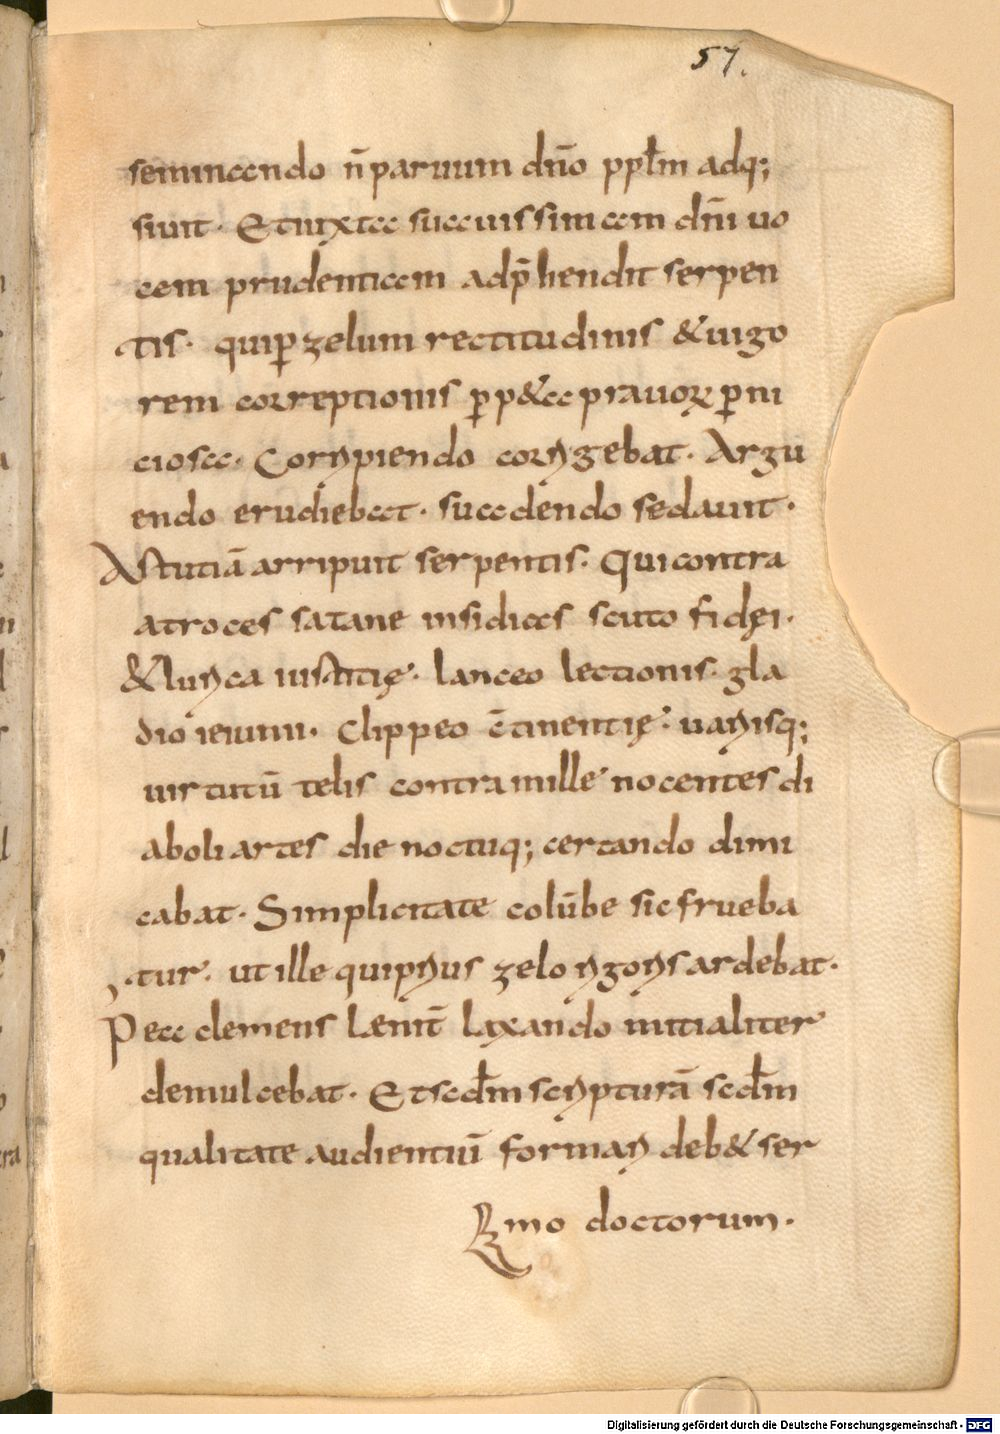 57.
seminando n̄ paruum dn̄o ppl̄m adq;
siuit. Et iuxta suauissimam dn̄i uo
cem prudentiam adp̄hendit serpen
tis. qui ꝑ zelum rectitudinis & uigo
rem correptionis ꝑp&ca prauoꝝ ꝑni
ciosa. Corripiendo corrigebat. Argu
endo erudiebat. suadendo sedauit.
Astutiā arripuit serpentis. Qui contra
atroces satane insidias scuto fidęi.
& lurica iustitię. lanceo lectionis. gla
dio ieiunii. Clippeo c̄tinentię. uariisq;
uirtutū telis contra mille nocentes di
aboli artes die noctuq; certando dimi
cabat. Simplicitate colūbe sic frueba
tur. ut ille qui prius zelo rigoris ardebat.
Pea clemens Lænit̄ laxando initialiter
demulcebat. Et scd̄m scripturā scd̄m
qualitate audientiū formari deb& ser
Rmo doctorum.
Digitalisierung gefördert durch die Deutsche Forschungsgemeinschaft - DFG